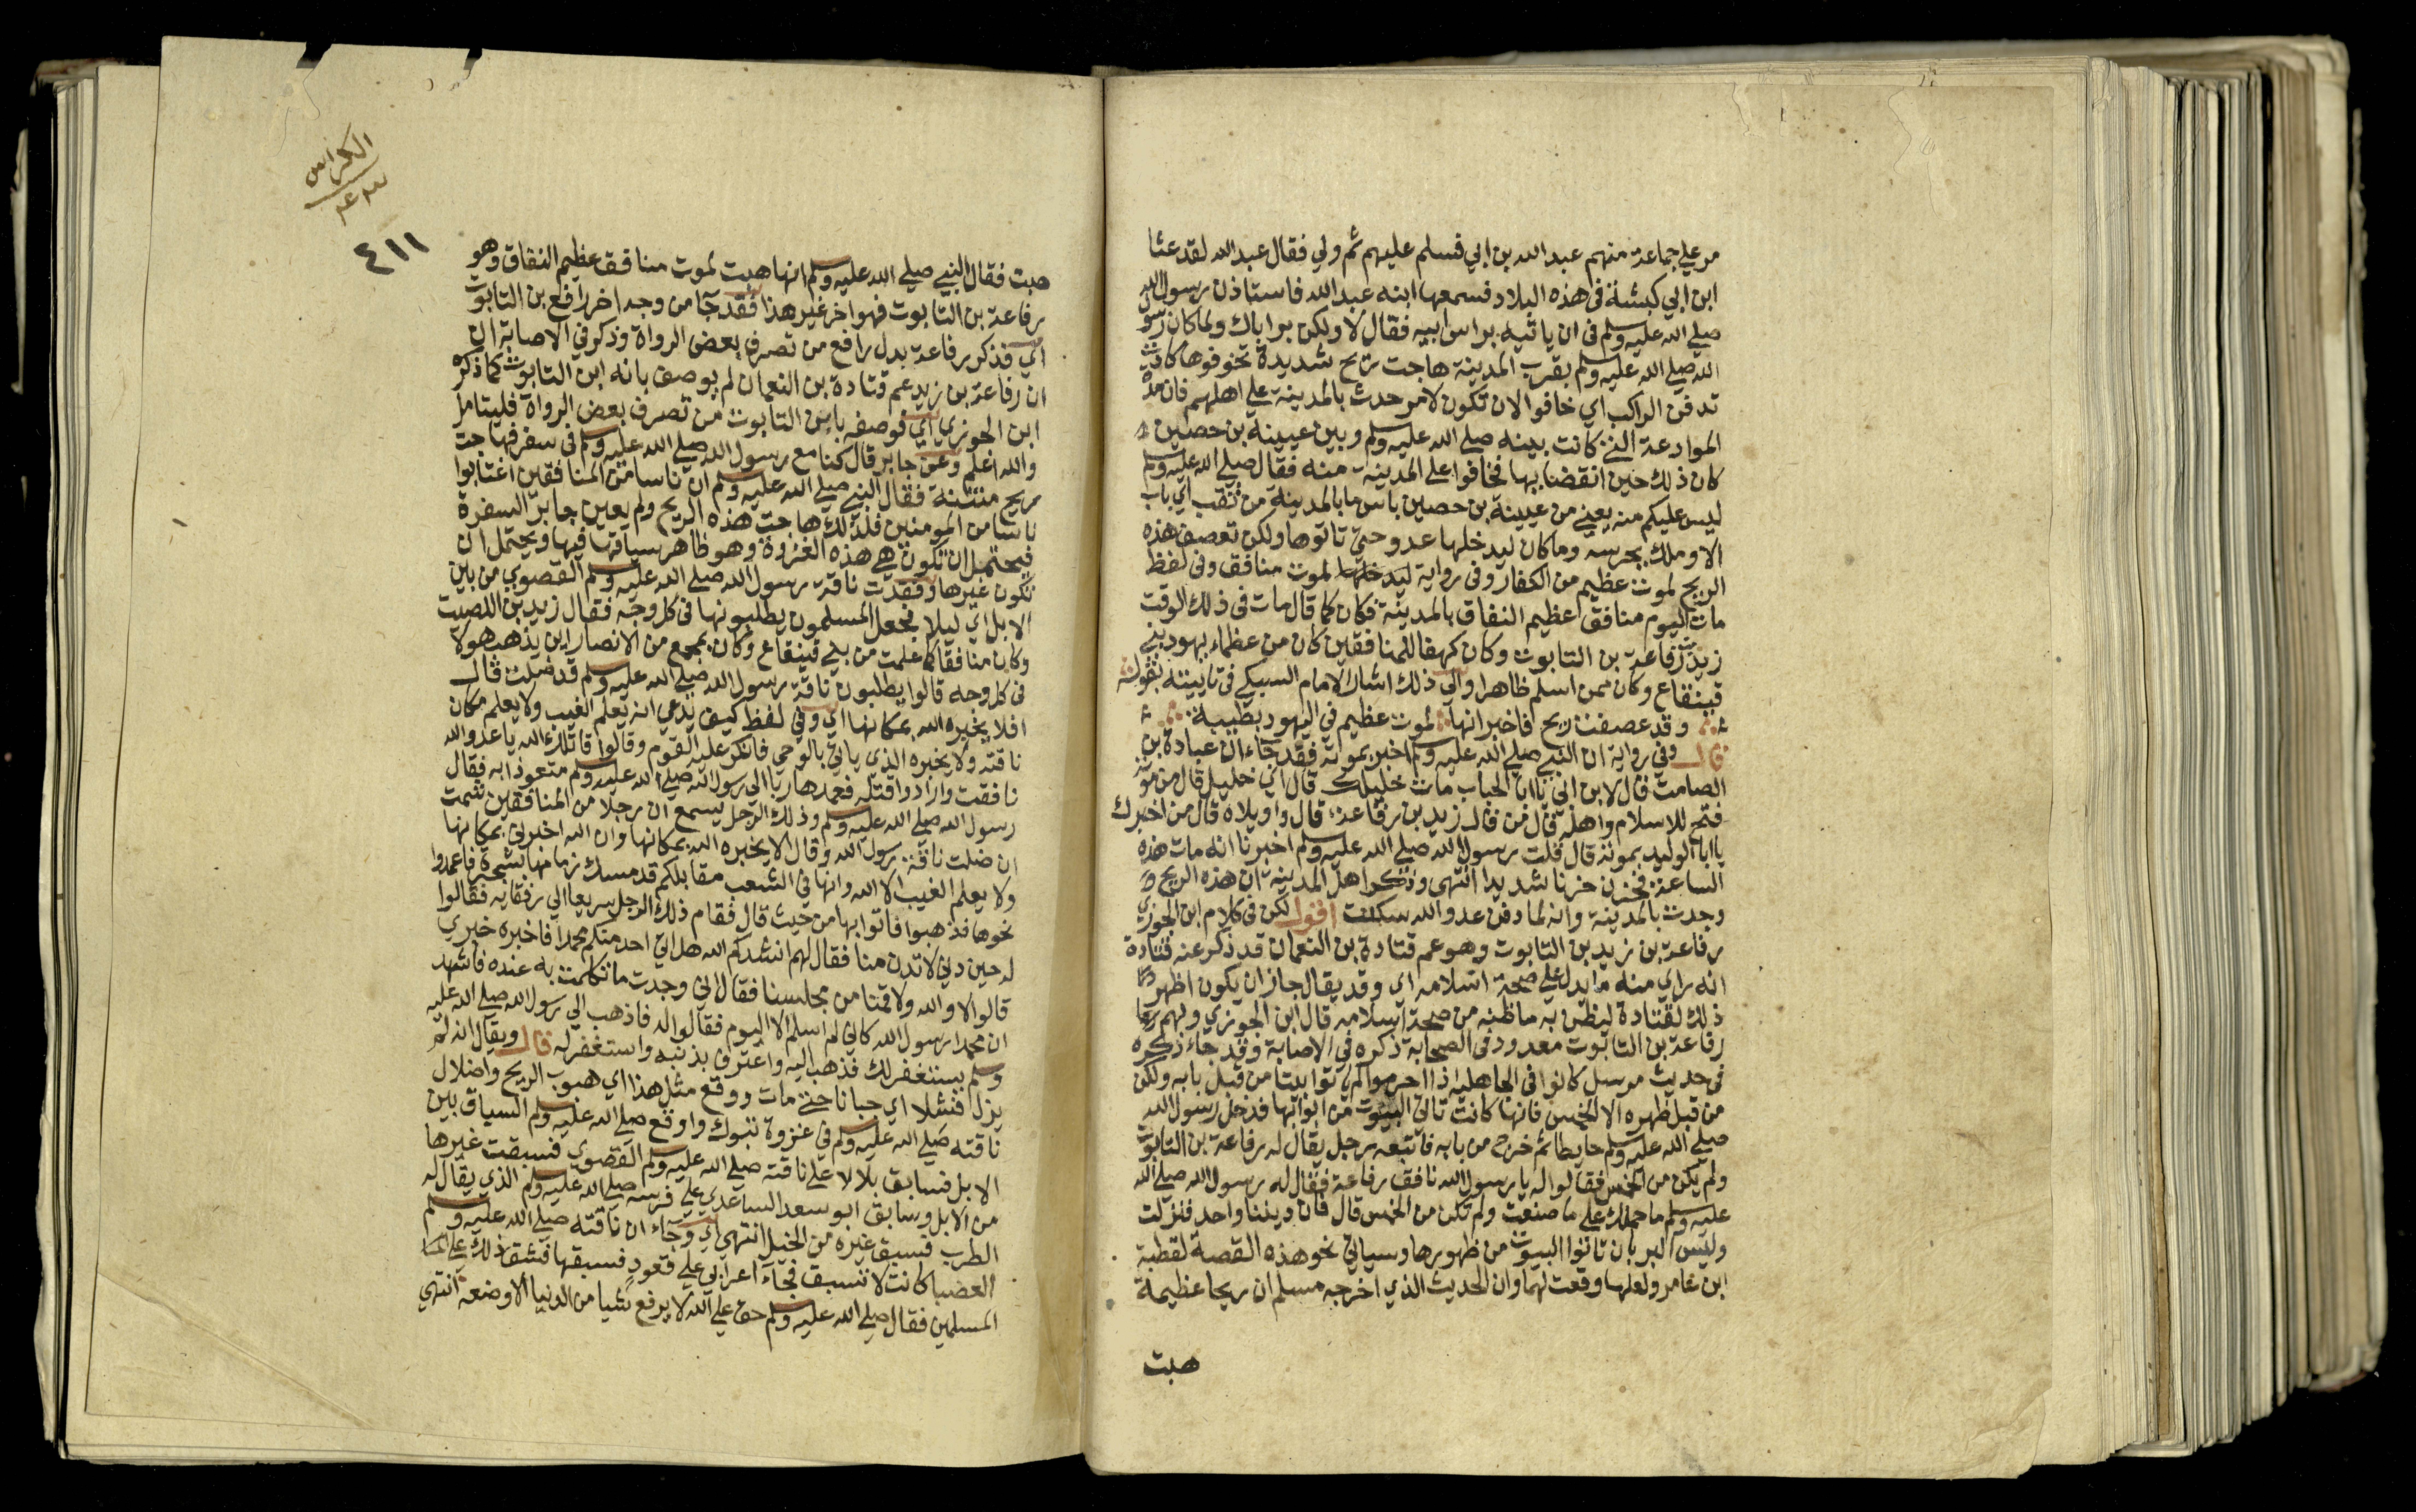 مر علي جماعة منهم عبد الله بن ابي فسلم عليهم ثم ولي فقال عبد الله لقد عثا
ابن ابي كبشة في هذه البلاد فسمعها ابنه عبد الله فاستاذن رسول الله
صلي الله عليه وسلم في ان ياتيه براس ابيه فقال لا ولكن بر اباك ولما كان رسول
الله صلي الله عليه وسلم بقرب المدينة هاجت ريح شديدة تخوفوها كادت
تدفن الراكب اي خافوا الان تكون لامر حدث بالمدينة علي اهلهم فان مدة
الموادعة التي كانت بينه صلي الله عليه وسلم وبين عيينة بن حصين
كان ذلك حين انقضايها فخافوا علي المدينة منه فقال صلي الله عليه وسلم
ليس عليكم منه يعني من عيينة بن حصين باس ما بالمدينة من نقب اي باب
الا وملك يحرسه وما كان ليدخلها عدو حتي تاتوها ولكن تعصف هذه
الريح لموت عظيم من الكفار وفي رواية لموت منافق وفي لفظ
مات اليوم منافق عظيم النفاق بالمدينة فكان كما قال مات في ذلك الوقت
زيد بن رفاعة بن التابوت وكان كهفا للمنافقين كان من عظماء يهود بني
قينقاع وكان ممن اسلم ظاهرا والي ذلك اشار الامام السبكي في تاييته بقوله
وقد عصفت ريح فاخبر انها لموت عظيم في اليهود بطيبة
قال وفي رواية ان النبي صلي الله عليه وسلم اخبر بموته فقد جاء ان عبادة بن
الصامت قال لابن ابي يا ابا الحباب مات خليلك قال اي خليل قال من موته
فتح للاسلام واهله قال من قال زيد بن رفاعة قال واويلاه قال من اخبرك
يا ابا الوليد بموته قال قلت رسول الله صلي الله عليه وسلم اخبرنا انه مات هذه
الساعة فحزن حزنا شديدا انتهي وذكر اهل المدينة ان هذه الريح
وجدت بالمدينة وانه لما دفن عدو الله سكنت اقول لكن في كلام ابن الجوزي
رفاعة بن زيد بن التابوت وهو عم قتادة بن النعمان قد ذكر عنه قتادة
انه راي منه ما يدل علي صحة اسلامه اي وقد يقال جاز ان يكون اظهر
ذلك لقتادة ليظن به ما ظنه من صحة اسلامه قال ابن الجوزي ولهم
رفاعة بن التابوت معدود في الصحابة ذكره في الاصابة وقد جاء ذكره
في حديث مرسل كانوا في الجاهلية اذا احرموا لم ياتوا بيتا من قبل بابه ولكن
من قبل ظهره الا الحمس فانها كانت تاتي البيوت من ابوابها فدخل رسول الله
صلي الله عليه وسلم حايطا ثم خرج من بابه فاتبعه رجل يقال له رفاعة بن التابوت
ولم يكن من الحمس فقالوا له يا رسول الله نافق رفاعة فقال له رسول الله صلي الله
عليه وسلم ما حملك علي ما صنعت ولم تكن من الحمس قال فان ديننا واحد فنزلت
وليس البر بان تاتوا البيوت من ظهورها وسياتي نحو هذه القصة لقطبة
ابن عامر ولعلها وقعت لهما وان الحديث الذي اخرجه مسلم ان ريحا عظيمة
هبت
الكراس
٤١١
هبت فقال النبي صلي الله عليه وسلم انها هبت لموت منافق عظيم النفاق وهو
رفاعة بن التابوت فهو اخر غير هذا فقد جا من وجه اخر رافع بن التابوت
اي فذكر رفاعة بدل رافع من تصرف بعض الرواة وذكر في الاصابة ان
ان رفاعة بن زيد عم قتادة بن النعمان لم يوصف بانه ابن التابوت كما ذكره
ابن الجوزي اي فوصفه بابن التابوت من تصرف بعض الرواة فليتامل
والله اعلم وعن جابر قال كنا مع رسول الله صلي الله عليه وسلم في سفر فهاجت
ريح منتنة فقال النبي صلي الله عليه وسلم ان ناسا من المنافقين اغتابوا
ناسا من المومنين فلذلك هاجت هذه الريح ولم يعين جابر السفرة
فيحتمل ان تكون هي هذه الغزوة وهو ظاهر سياقها فيها ويحتمل ان
تكون غيرها وفقدت ناقة رسول الله صلي الله عليه وسلم القصوي من بين
الابل اي ليلا فجعل المسلمون يطلبونها في كل وجه فقال زيد بن اللصيت
وكان منافقا كما علمت من بني قينقاع وكان بجمع من الانصار اين يذهب هولا
في كل وجه قالوا يطلبون ناقة رسول الله صلي الله عليه وسلم قد ضلت قال
افلا يخبره الله بمكانها اي وفي لفظ كيف يدعي انه يعلم الغيب ولا يعلم مكان
ناقته ولا يخبره الذي ياتيه بالوحي فانكر عليه القوم وقالوا قاتلك الله يا عدو الله
نافقت وارادوا قتله فعمد هاربا الي رسول الله صلي الله عليه وسلم متعوذا به فقال
رسول الله صلي الله عليه وسلم وذلك الرجل يسمع ان رجلا من المنافقين شمت
ان ضلت ناقة رسول الله وقال الا يخبره الله بمكانها وان الله اخبرني بمكانها
ولا يعلم الغيب الا الله وانها في الشعب مقابلكم قد مسك زمامها بشجرة فاعمدوا
نحوها فذهبوا فاتوا بها من حيث قال فقام ذلك الرجل سريعا الي رفقايه فقالوا
له حين دني لا تدن منا فقال لهم انشدكم الله هل اتي احد منكم محمدا فاخبره خبري
قالوا لا والله ولا قمنا من مجلسنا فقال اني وجدت ما تكلمت به عنده فاشهد
ان محمدا رسول الله كاني لم اسلم الا اليوم فقالوا له فاذهب الي رسول الله صلي الله عليه
وسلم يستغفر لك فذهب اليه واعترف بذنبه واستغفر له قال ويقال انه لم
يزل فشلا اي جبانا حتي مات ووقع مثل هذا اي هبوب الريح واضلال
ناقته صلي الله عليه وسلم في غزوة تبوك واوقع صلي الله عليه وسلم السباق بين
الابل فسابق بلالا علي ناقته صلي الله عليه وسلم القصوي فسبقت غيرها
من الابل وسابق ابو سعد الساعدي علي فرسه صلي الله عليه وسلم الذي يقال له
الطرب فسبق غيره من الخيل انتهي اي وجاء ان ناقته صلي الله عليه وسلم
العضبا كانت لا تسبق فجاء اعرابي علي قعود فسبقها فشق ذلك علي
المسلمين فقال صلي الله عليه وسلم حق علي الله لا يرفع شيا من الدنيا الا وضعه انتهي